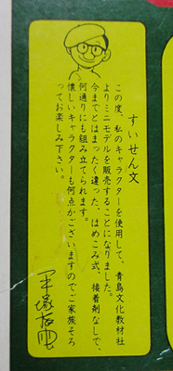 すいせん文
この度、私のキャラクターを使用して、青島文化教材社
よりミニモデルを販売することになりました。
今までとはまったく違った、はめこみ式、接着剤なしで、
何通りにも組み立てられます。
懐しいキャラクターも何点かございますのでご家族そろ
ってお楽しみ下さい。
手塚治虫